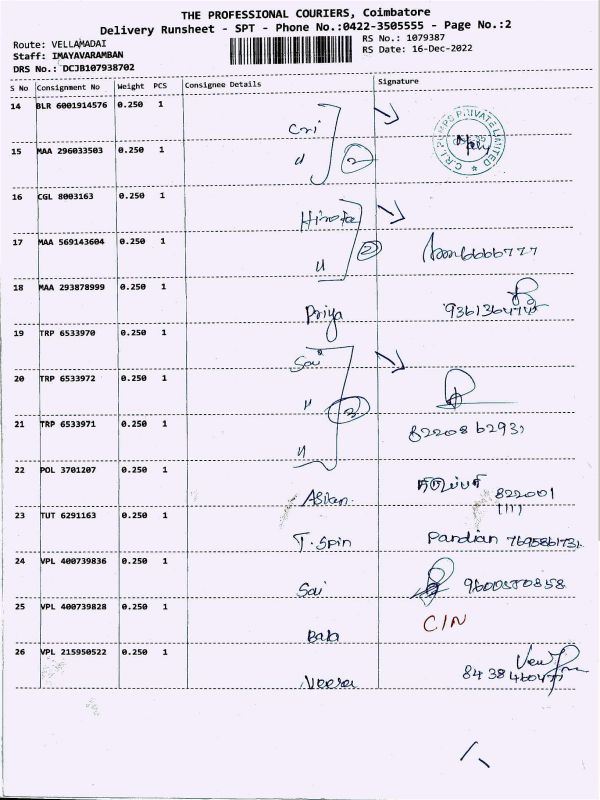 THE PROFESSIONAL COURIERS, Coimbatore
Delivery Runsheet - SPT - Phone No.:0422-3505555 - Page No.:2
Route: VELLAMADAI
RS No.: 1079387
Staff: IMAYAVARAMBAN
RS Date: 16-Dec-2022
DRS No.: DCJB107938702
S No Consignment No Weight PCS Consignee Details Signature
14 BLR 6001914576 0.250 1
Cri
C.R.I. PUMPS PRIVATE LIMITED
15 MAA 296033503 0.250 1
" 2
16 CGL 8003163 0.250 1
17 MAA 569143604 0.250 1
" 2
18 MAA 293878999 0.250 1
Priya
19 TRP 6533970 0.250 1
Sai
20 TRP 6533972 0.250 1
" 3
21 TRP 6533971 0.250 1
" 8220862931
22 POL 3701207 0.250 1
822001
23 TUT 6291163 0.250 1
T. Spin Pandian 7695861731
24 VPL 400739836 0.250 1
Sai 9600580858
25 VPL 400739828 0.250 1
Bala C/N
26 VPL 215950522 0.250 1
Veera